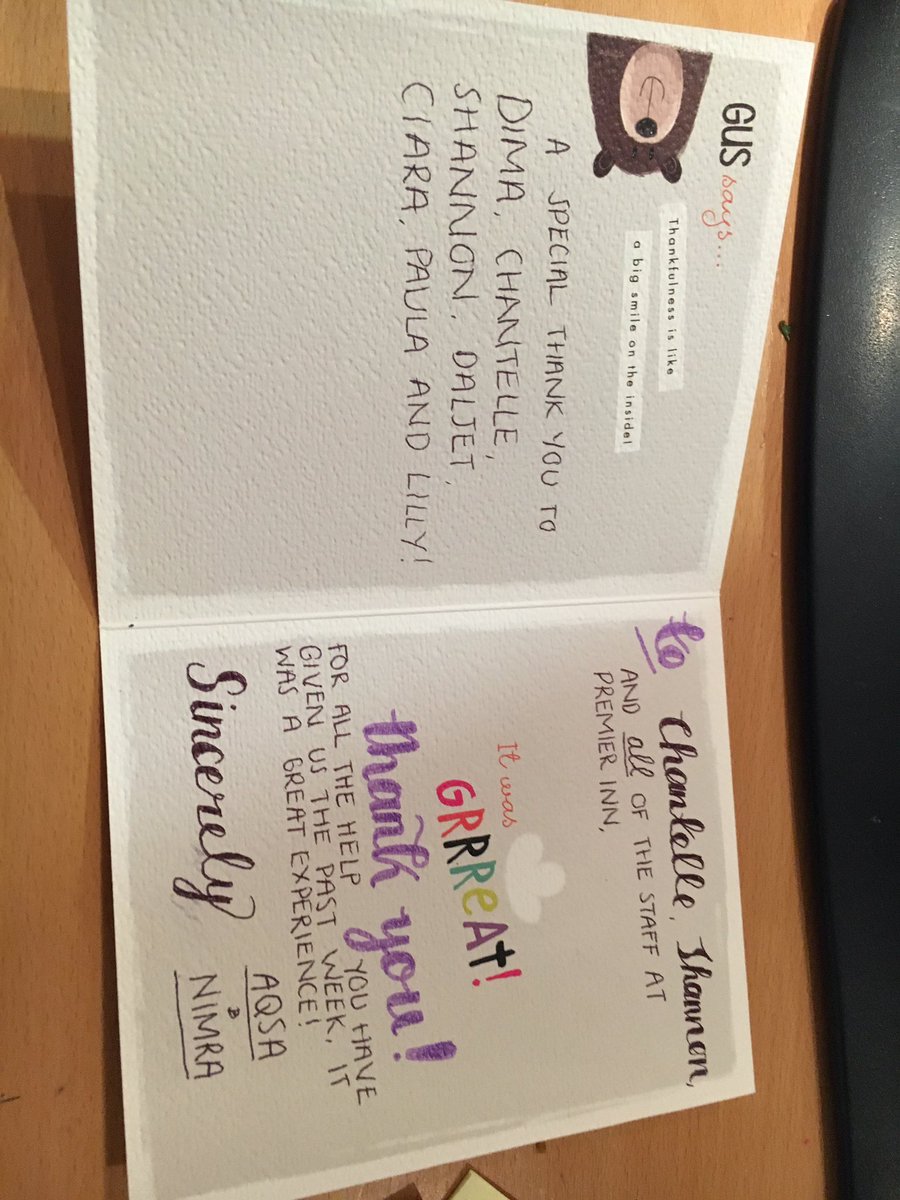 GUS says...
Thankfulness is like
a big smile on the inside!
A SPECIAL THANK YOU TO
DIMA, CHANTELLE,
SHANNON, DALJET,
CIARA, PAULA AND LILLY!
to Chantelle, Shannon,
AND all OF THE STAFF AT
PREMIER INN,
It was
GRRReAt!
thank you!
FOR ALL THE HELP YOU HAVE
GIVEN US THE PAST WEEK, IT
WAS A GREAT EXPERIENCE!
Sincerely
AQSA
&
NIMRA